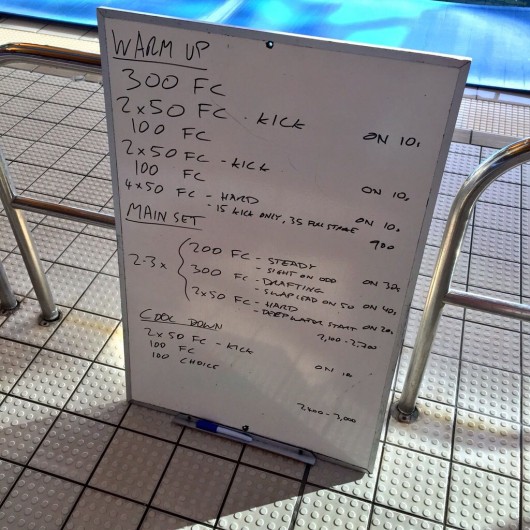 WARM UP
300 FC
2x50 FC - KICK ON 10s
100 FC
2x50 FC - KICK ON 10s
100 FC
4x50 FC - HARD ON 10s
- 15 KICK ONLY, 35 FULL STROKE 900
MAIN SET
2-3x
200 FC - STEADY
- SIGHT ON ODD ON 30s
300 FC - DRAFTING
- SWAP LEAD ON 50 ON 40s
2x50 FC - HARD
- DEEP WATER START ON 20s
2,100 - 2,700
COOL DOWN
2x50 FC - KICK ON 10
100 FC
100 CHOICE
2,400 - 3,000